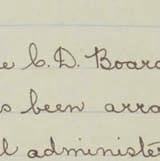 e C. D. Board
s been arra
l administ